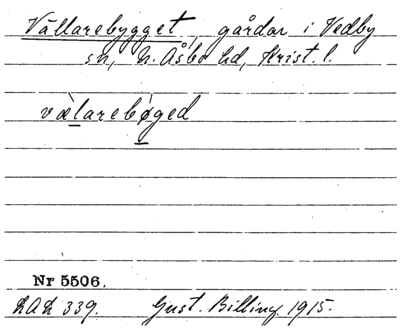 Vällarebygget, gårdar i Vedby
sn, N. Åsbo hd, Krist. l.
væ̀larebøged
Nr 5506.
LAL 339. Gust. Billing 1915.